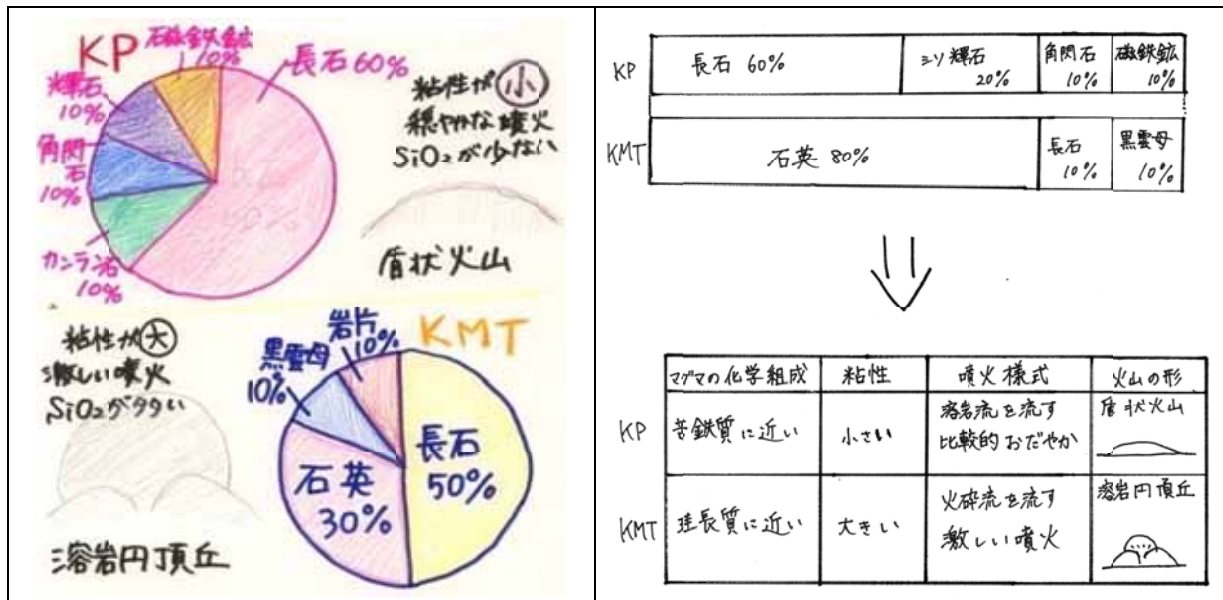 KP
磁鉄鉱
10%
長石60%
輝石
10%
角閃
石
10%
カンラン石
10%
粘性が小
穏やかな噴火
SiO₂が少ない
盾状火山
粘性が大
激しい噴火
SiO₂が多い
溶岩円頂丘
KMT
岩片
10%
黒雲母
10%
長石
50%
石英
30%
KP
長石 60%
シソ輝石
20%
角閃石
10%
磁鉄鉱
10%
KMT
石英 80%
長石
10%
黒雲母
10%
マグマの化学組成 粘性 噴火様式 火山の形
KP
苦鉄質に近い
小さい
溶岩流を流す
比較的おだやか
盾状火山
KMT
珪長質に近い
大きい
火砕流を流す
激しい噴火
溶岩円頂丘